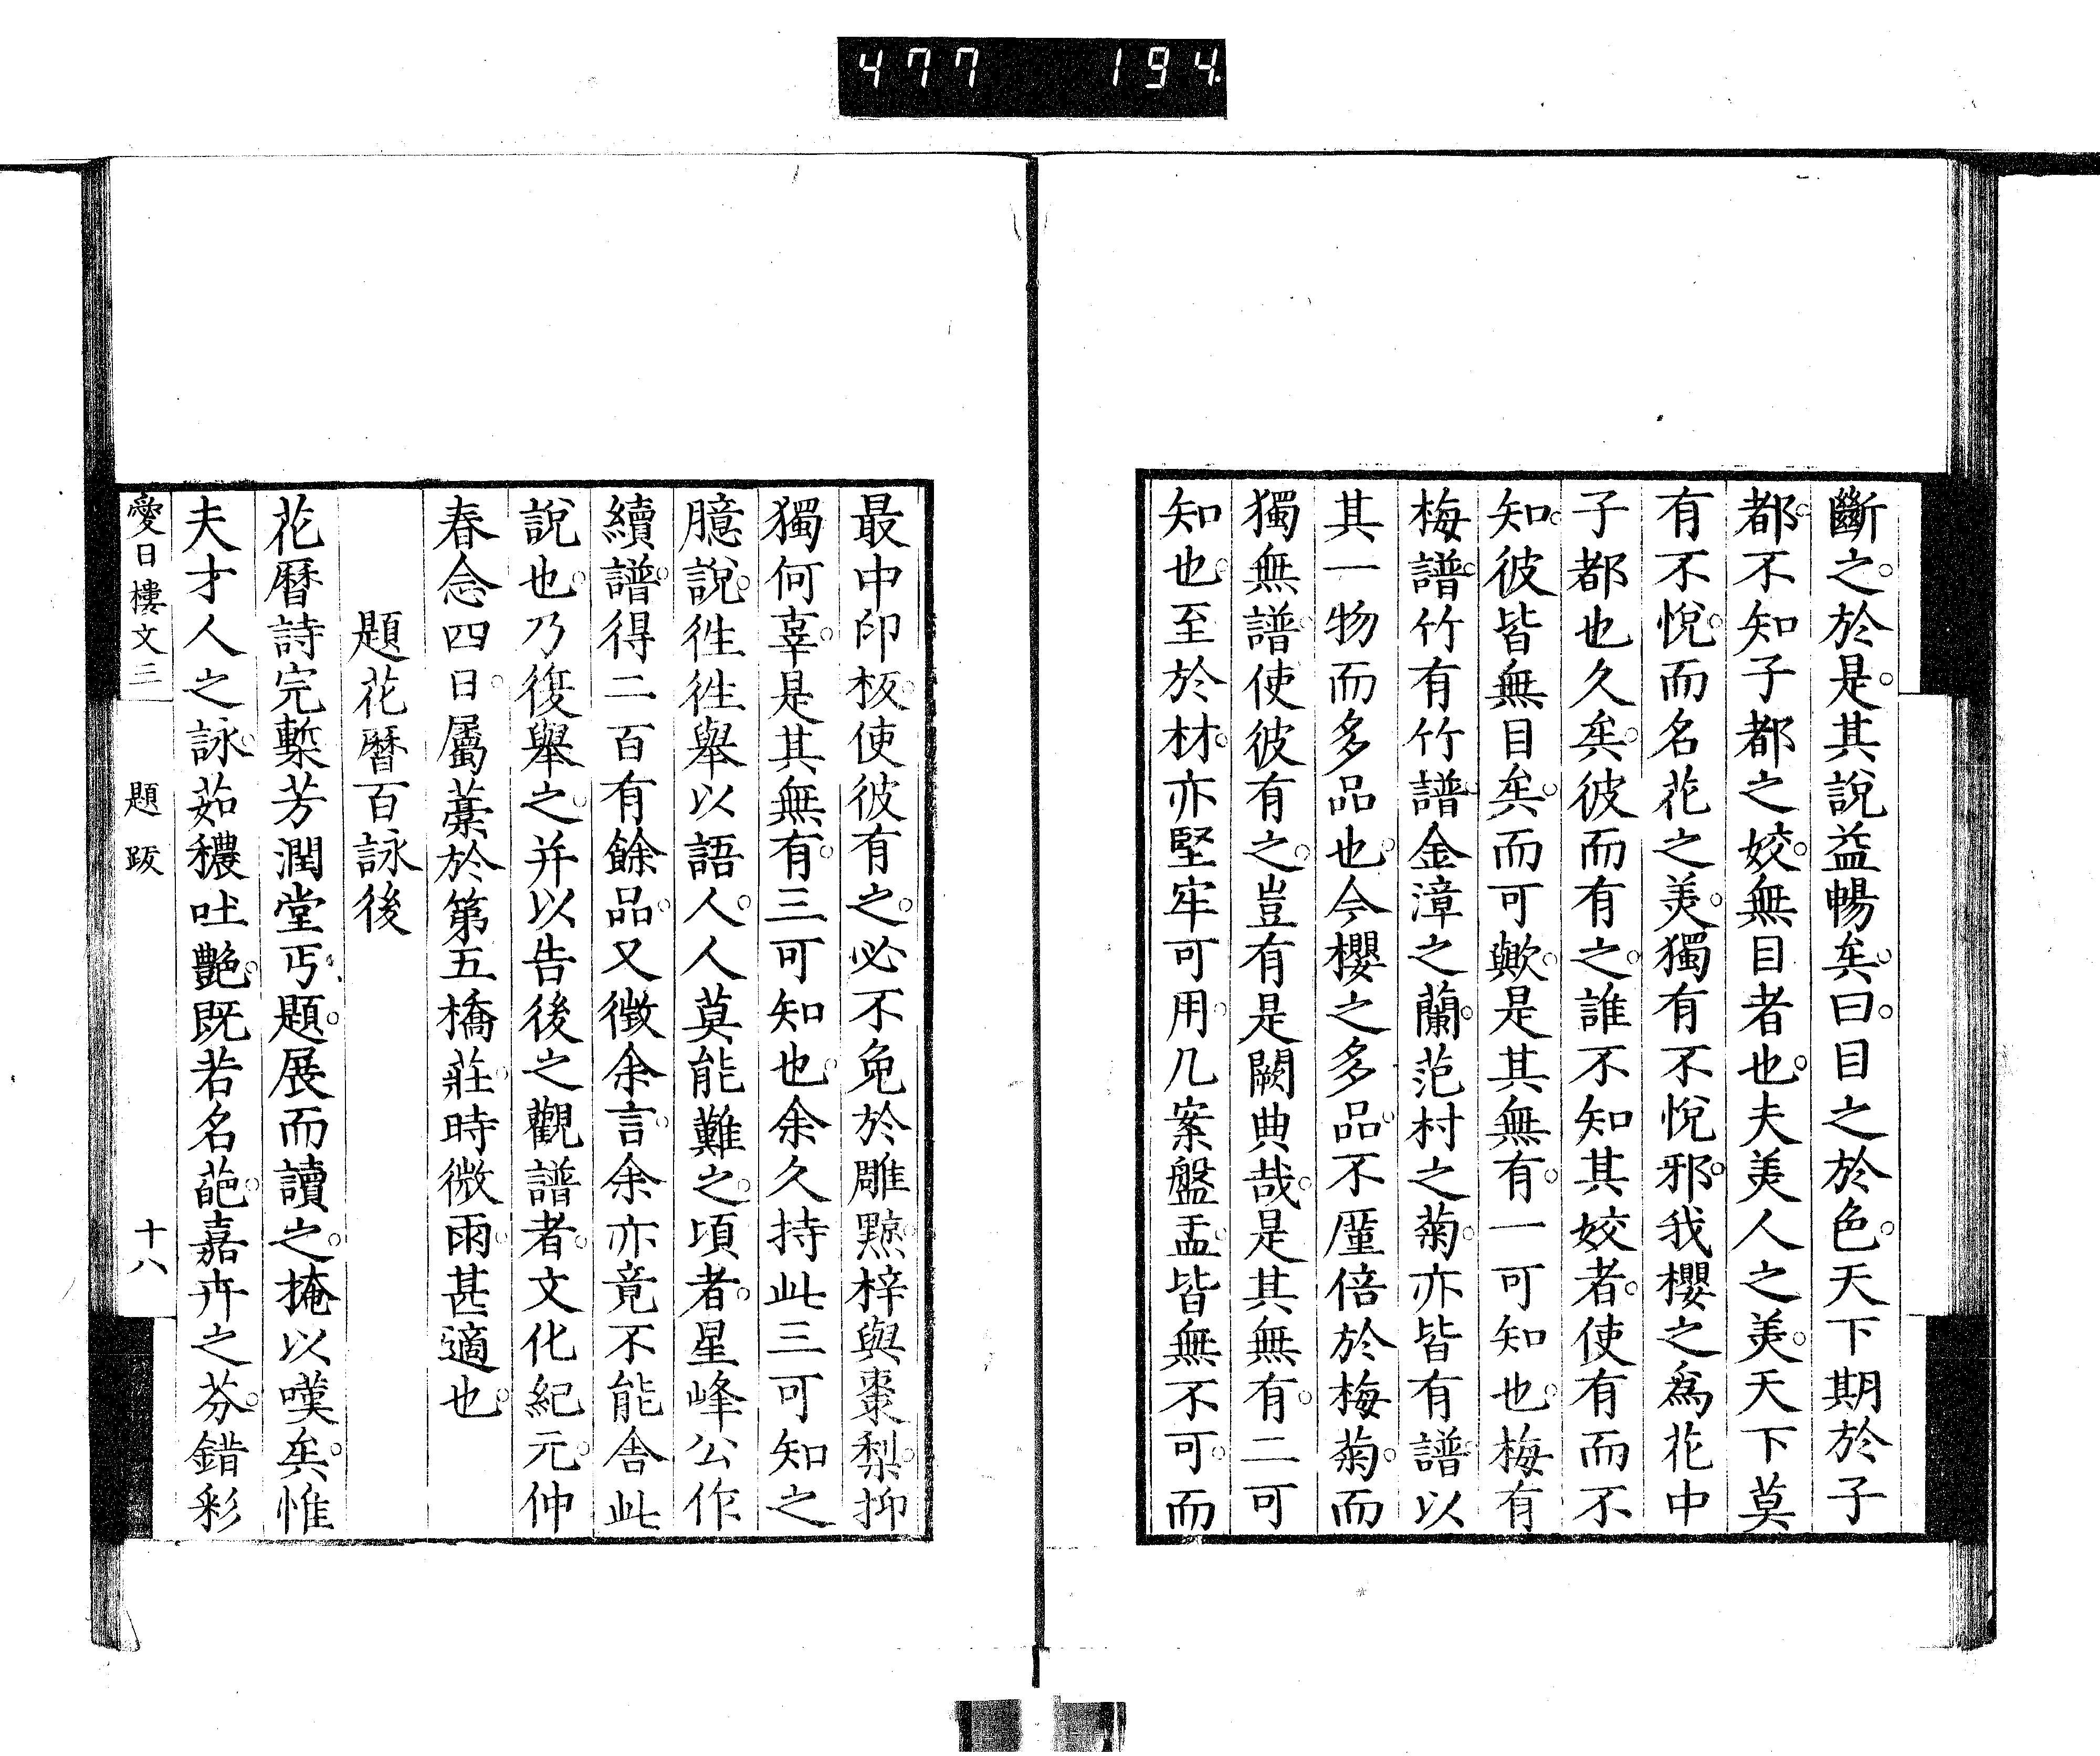 477 194
斷之。於是。其說益暢矣。曰。目之於色。天下期於子
都。不知子都之姣。無目者也。夫美人之美。天下莫
有不悅。而名花之美。獨有不悅邪。我櫻之爲花中
子都也久矣。彼而有之。誰不知其姣者。使有而不
知。彼皆無目矣。而可歟。是其無有。一可知也。梅有
梅譜。竹有竹譜。金漳之蘭。范村之菊。亦皆有譜。以
其一物而多品也。今櫻之多品。不厪倍於梅菊。而
獨無譜。使彼有之。豈有是闕典哉。是其無有。二可
知也。至於材。亦堅牢可用。几案盤盂。皆無不可。而
最中印板。使彼有之。必不免於雕黥。梓與棗梨。抑
獨何辜。是其無有。三可知也。余久持此三可知之
臆說。徃徃舉以語人。人莫能難之。頃者。星峰公作
續譜。得二百有餘品。又徵余言。余亦竟不能舍此
說也。乃復舉之。并以告後之觀譜者。文化紀元。仲
春念四日。屬藁於第五橋莊。時微雨。甚適也。
題花曆百詠後
花曆詩完槧。芳潤堂丐題。展而讀之。掩以嘆矣。惟
夫才人之詠。茹穠吐艷。旣若名葩。嘉卉之芬。錯彩
愛日樓文三 題跋 十八